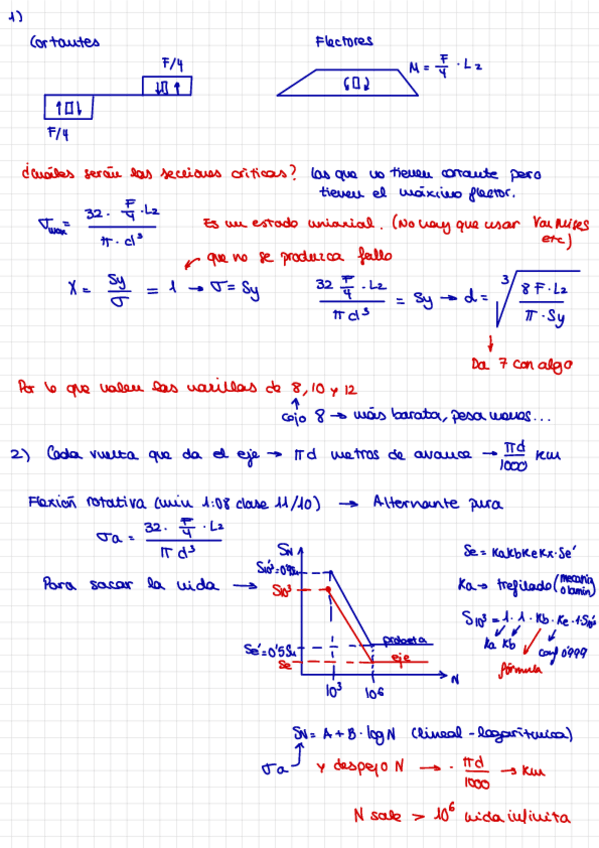 1)
Cortantes
Flectores
F/4
F/4
M = F/4 · L2
¿Cuáles serán las secciones críticas? Las que no tienen cortante pero
tienen el máximo flector.
σmax = 32 · F/4 · L2 / π · d³
Es un estado uniaxial. (No hay que usar Von Mises
etc)
que no se produzca fallo
X = Sy/σ = 1 → σ = Sy
32 F/4 · L2 / πd³ = Sy → d = ∛(8F · L2 / π · Sy)
Da 7 con algo
Por lo que valen las varillas de 8, 10 y 12
cojo 8 → más barata, pesa menos...
2) Cada vuelta que da el eje → πd metros de avance → πd/1000 km
Flexión rotativa (min 1:08 clase 11/10) → Alternante pura
σa = 32 · F/4 · L2 / πd³
Para sacar la vida →
SN
S10³=0'9Su
S10³
Se'=0'5Su
Se
probeta
eje
10³
10⁶
N
Se = KaKbKeKx · Se'
Ka → trefilado (mecaniz
o lamin)
S10³ = 1 · 1 · Kb · Ke · 1 S10³
Ka Kb
conf 0'999
fórmula
SN = A + B · log N (lineal - logarítmica)
σa
y despejo N → · πd/1000 → km
N sale > 10⁶ vida infinita